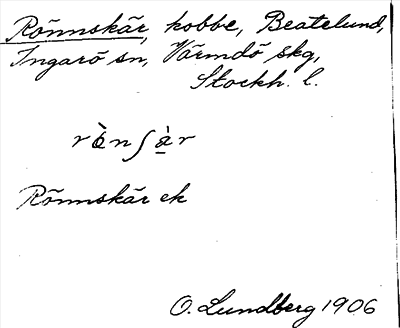 Rönnskär, kobbe, Beatelund,
Ingarö sn, Värmdö skg,
Stockh. l.
rö̀nʃà̱r
Rönnskär ek
O. Lundberg 1906